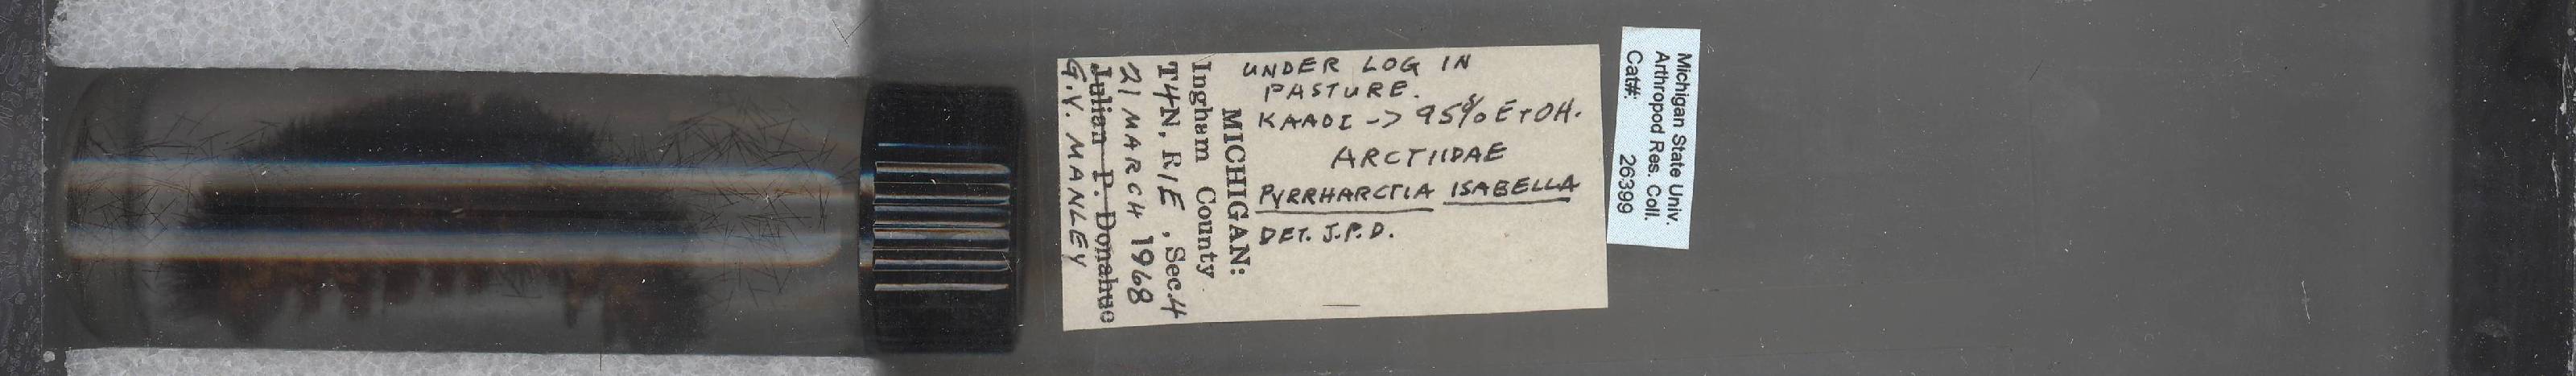 UNDER LOG IN
PASTURE.
KAADI -> 95% ETOH.
ARCTIIDAE
PYRRHARCTIA ISABELLA
DET. J.P.D.
MICHIGAN:
Ingham County
T4N, R1E, Sec. 4
21 MARCH 1968
Julian P. Donahue
G.V. MANLEY
Michigan State Univ.
Arthropod Res. Coll.
Cat#: 26399